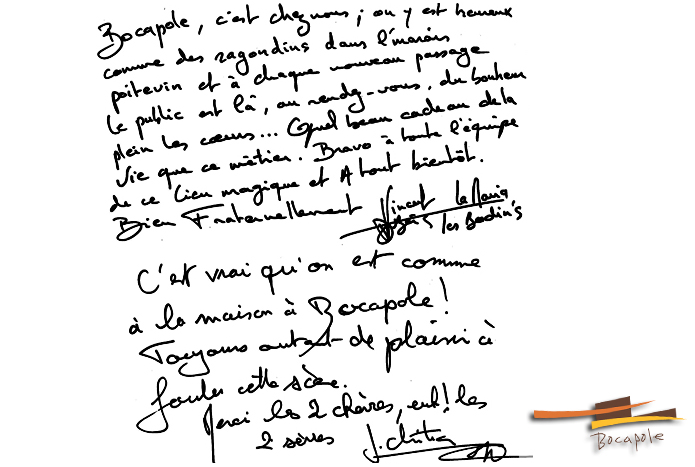 Bocapole, c'est chez nous ; on y est heureux
comme des ragondins dans l'marais
poitevin et à chaque nouveau passage
le public est là, au rendez-vous, du bonheur
plein les cœurs... Quel beau cadeau de la
vie que ce métier. Bravo à toute l'équipe
de ce lieu magique et A tout bientôt.
Bien Fraternellement Vincent
les Bodin's
C'est vrai qu'on est comme
à la maison à Bocapole !
Toujours autant de plaisir à
fouler cette scène.
les 2 chères, euh ! les
2 sœurs
Bocapole